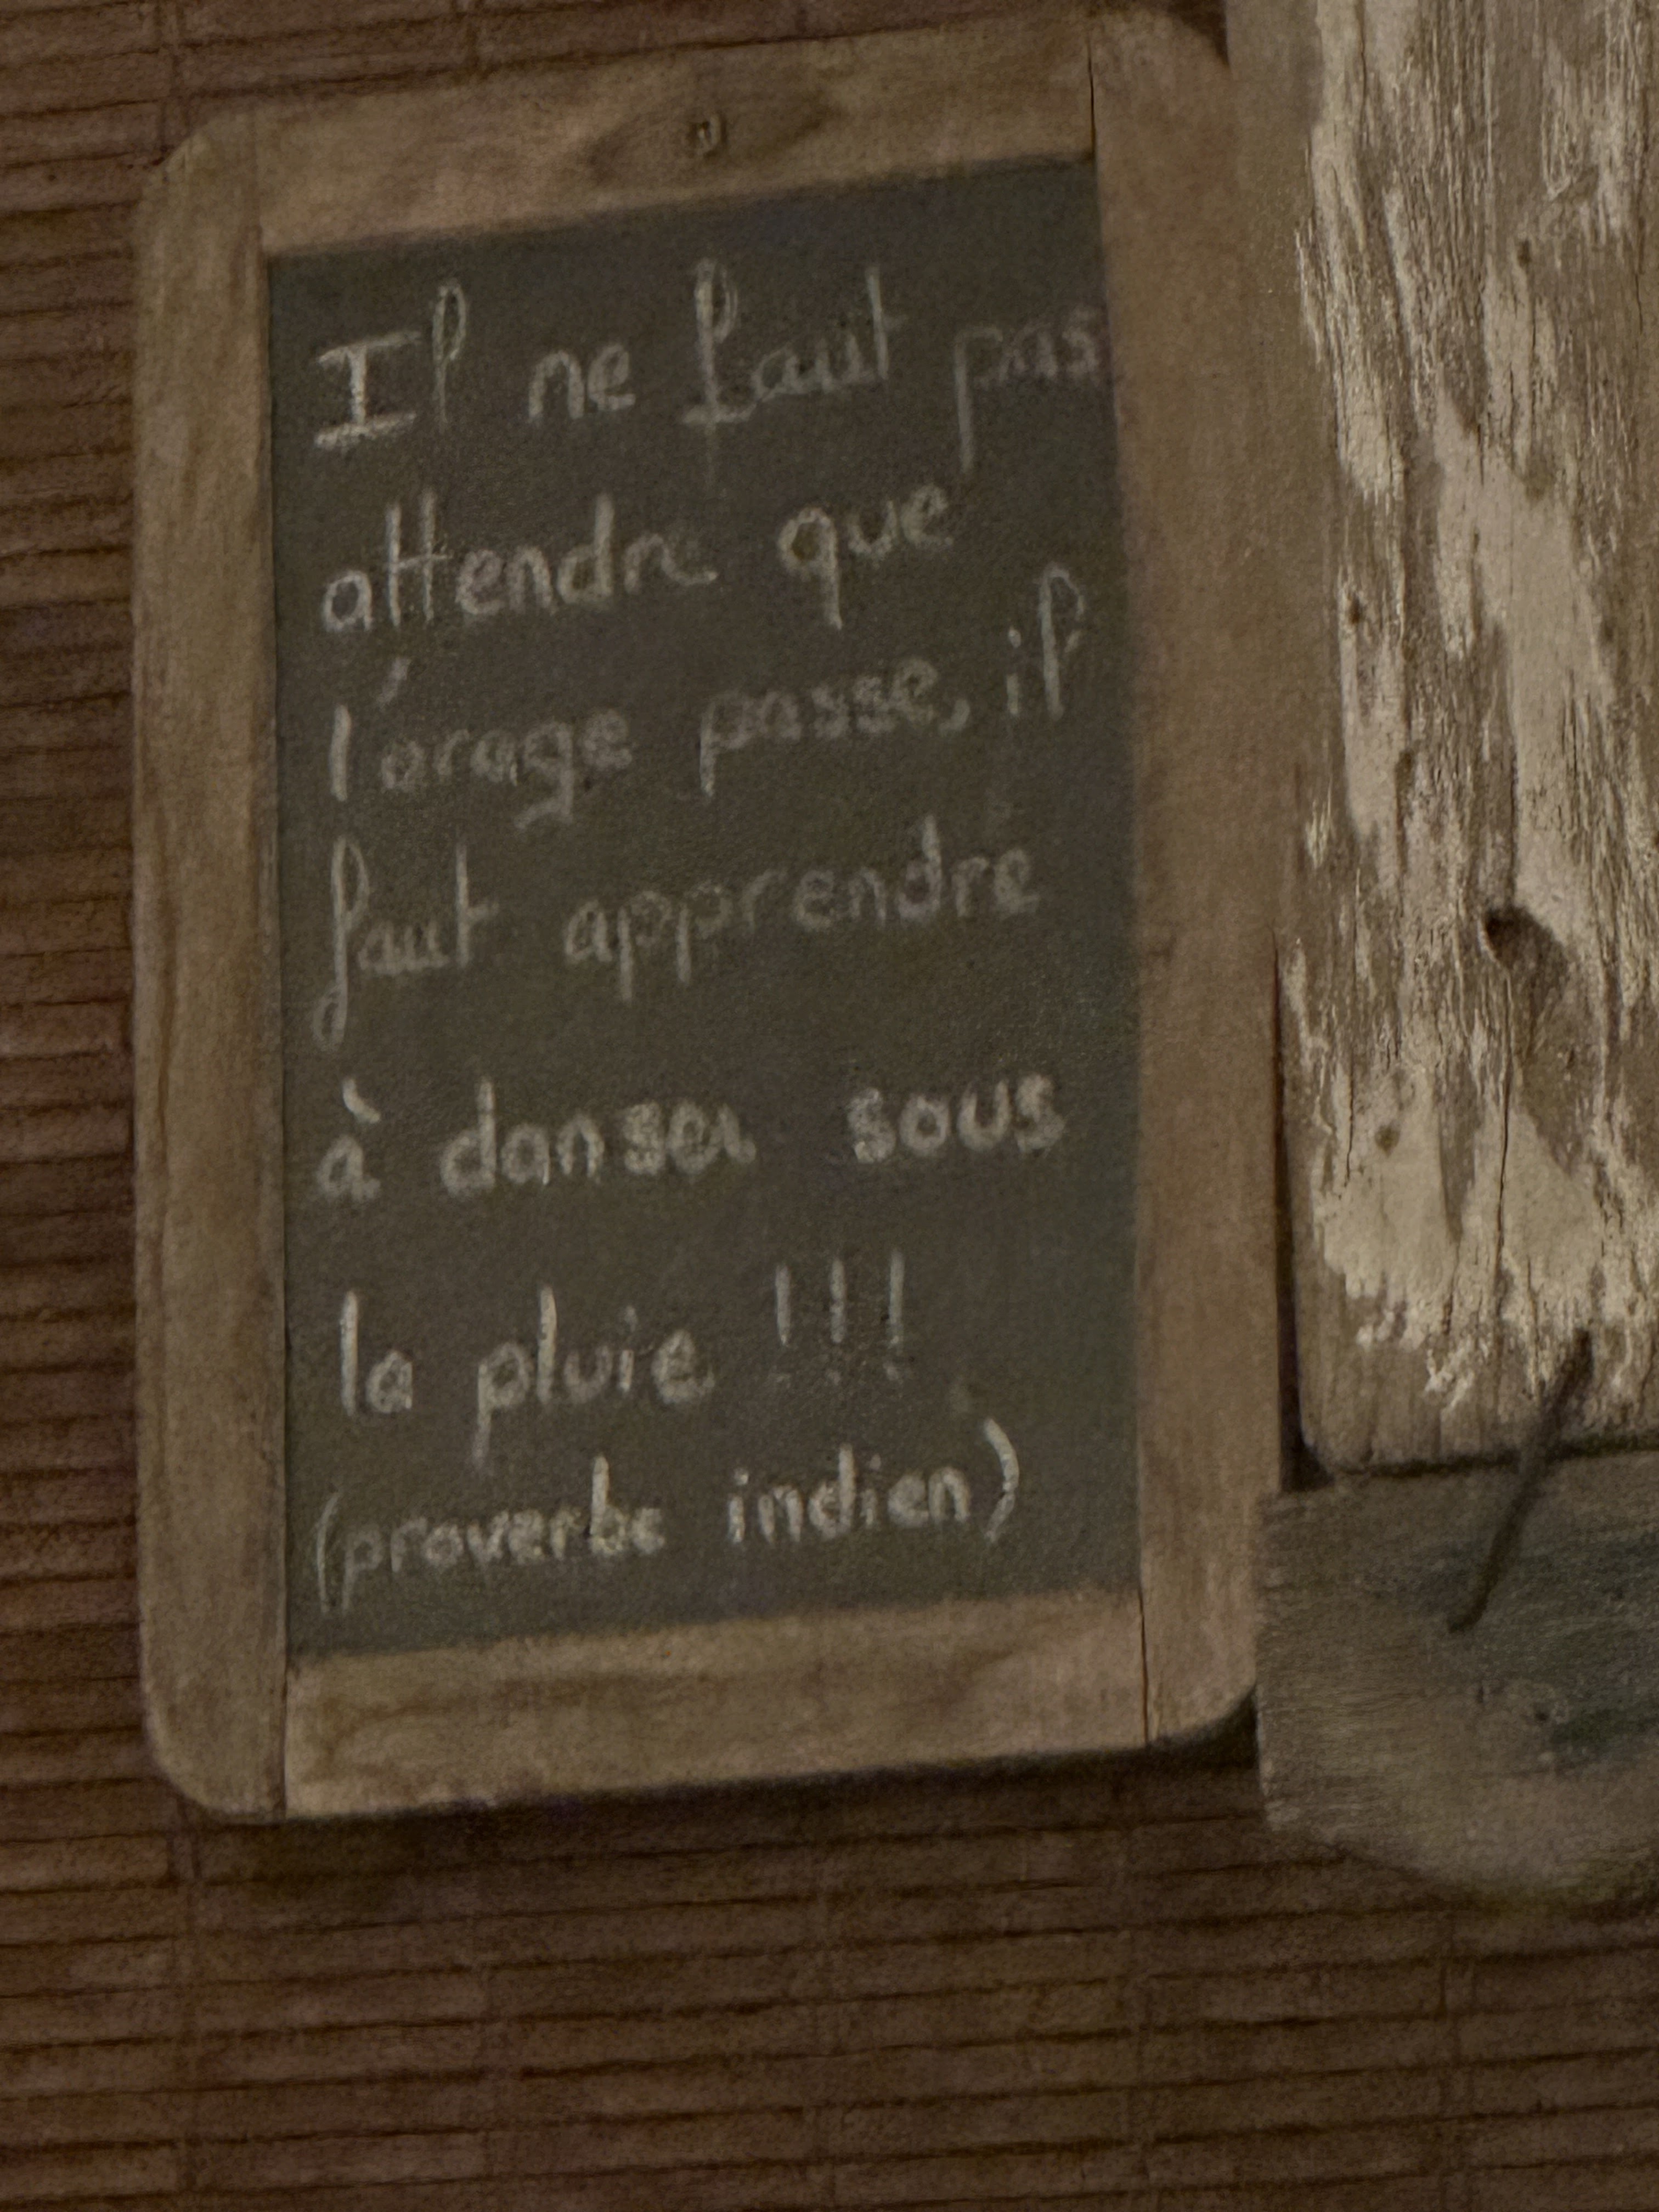 Il ne faut pas
attendre que
l'orage passe, il
faut apprendre
à danser sous
la pluie !!!
(proverbe indien)